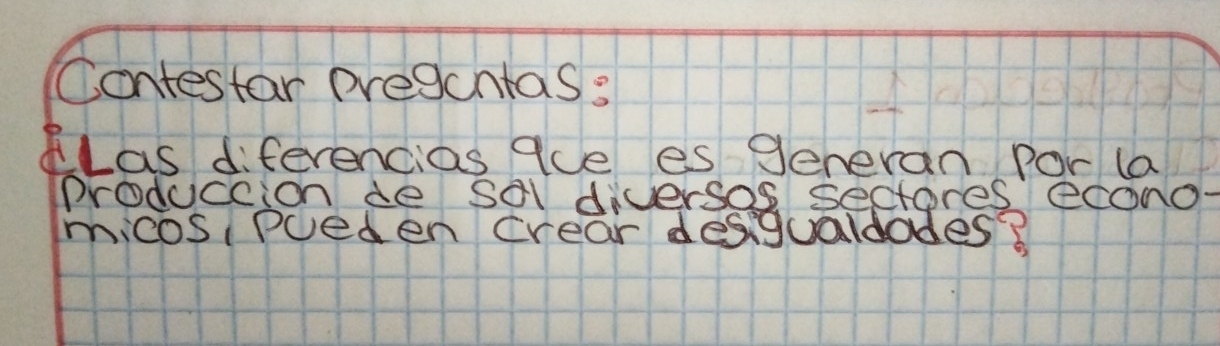 Contestar preguntas:
¿Las diferencias que es generan por la
produccion de sol diversos sectores econo-
micos, pueden crear desigualdades?